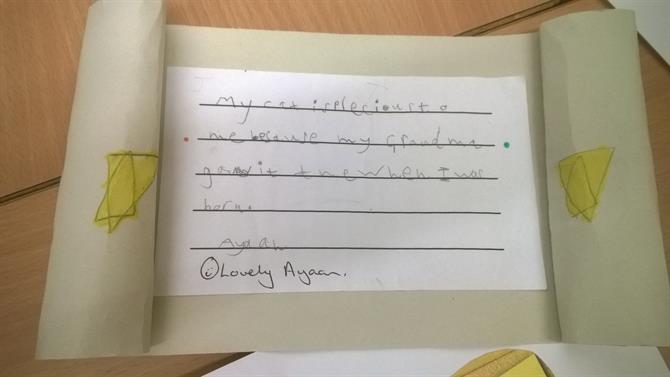 My cat is plecious to
me because my Grandma
gave it t me when I was
born.
Ayaan
Lovely Ayaan.